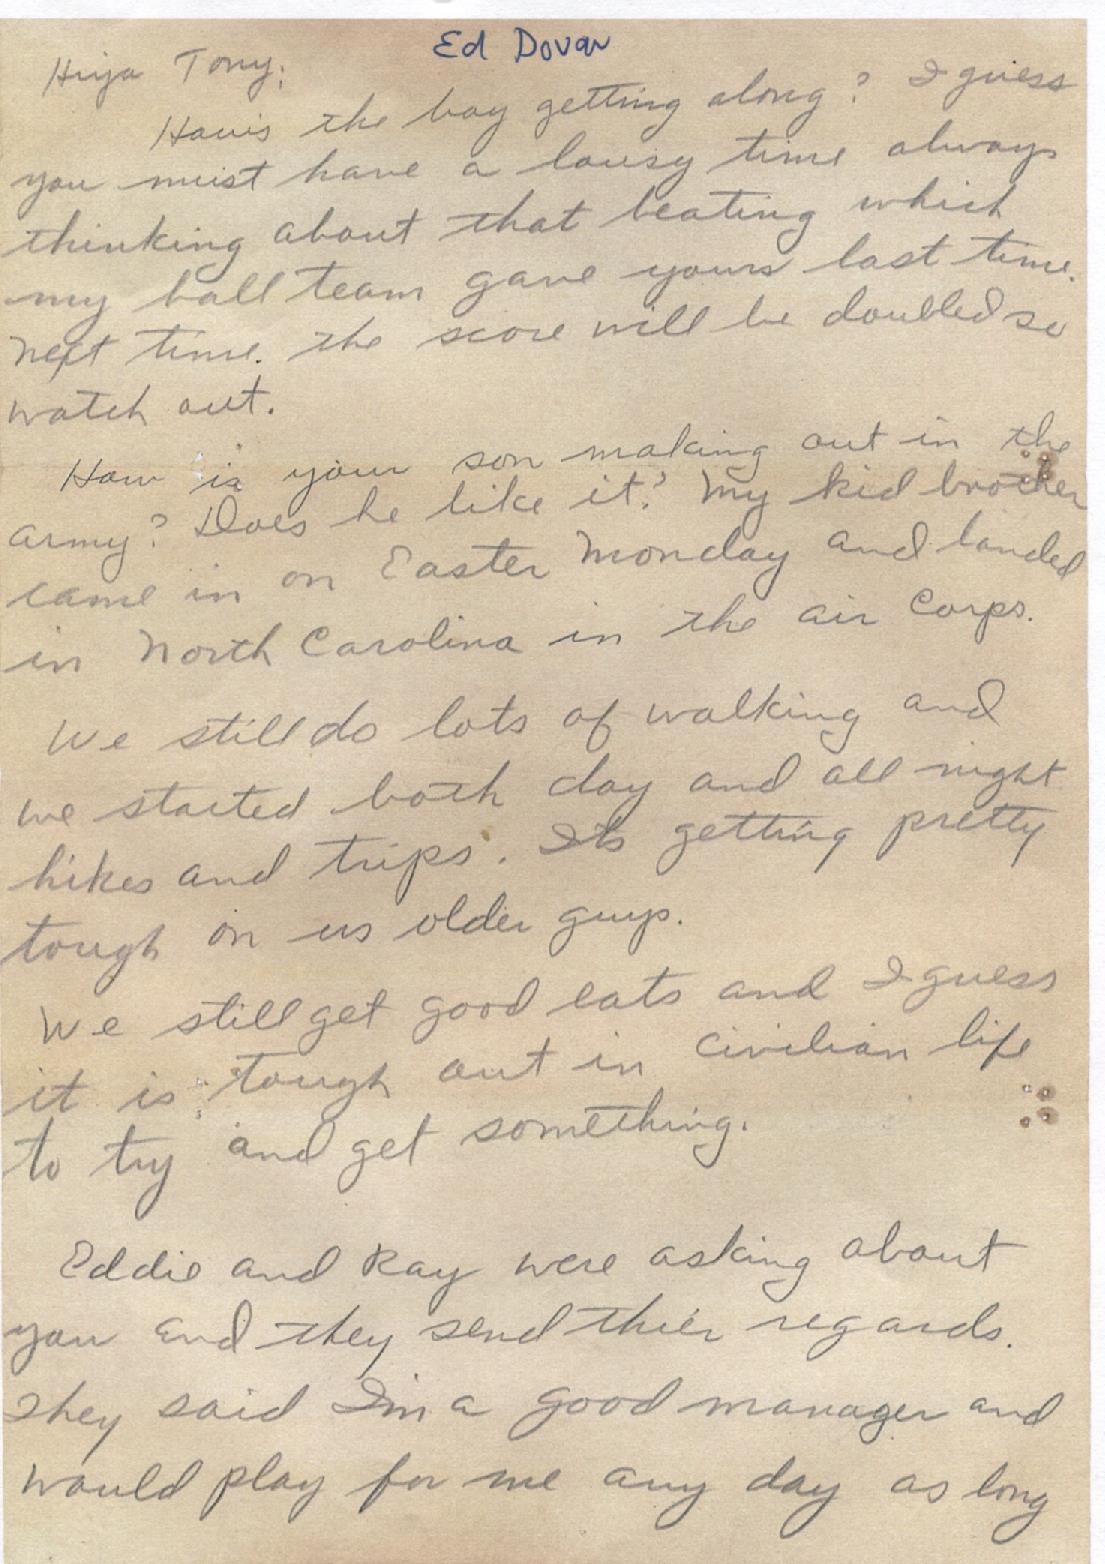 Ed Dovar
Hiya Tony;
How's the boy getting along? I guess
you must have a lousy time always
thinking about that beating which
my ball team gave yours last time.
Next time. the score will be doubled so
watch out.
How is your son making out in the
army? Does he like it? My kid brother
came in on Easter Monday and landed
in North Carolina in the air Corps.
We still do lots of walking and
we started both day and all night
hikes and trips. Its getting pretty
tough on us older guys.
We still get good eats and I guess
it is tough out in civilian life
to try and get something.
Eddie and Ray were asking about
you and they send thier regards.
They said I'm a good manager and
would play for me any day as long